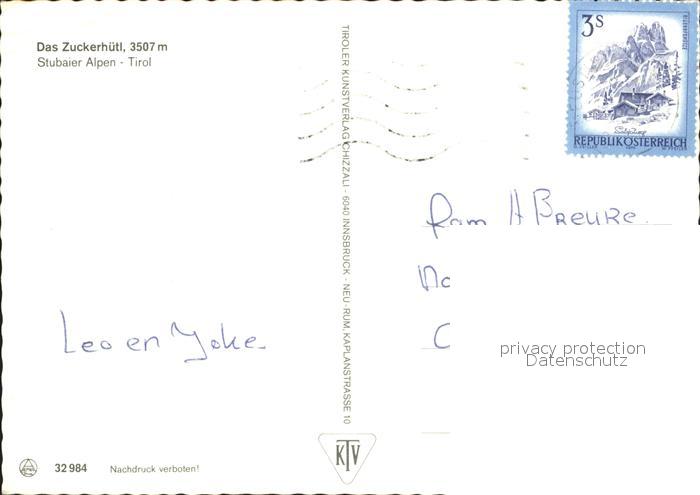 Das Zuckerhütl, 3507 m
Stubaier Alpen - Tirol
TIROLER KUNSTVERLAG CHIZZALI - 6040 INNSBRUCK - NEU-RUM, KAPLANSTRASSE 10
3 S
REPUBLIK ÖSTERREICH
Fam A Breure.
Leo en Joke
privacy protection
Datenschutz
KTV
32 984 Nachdruck verboten!